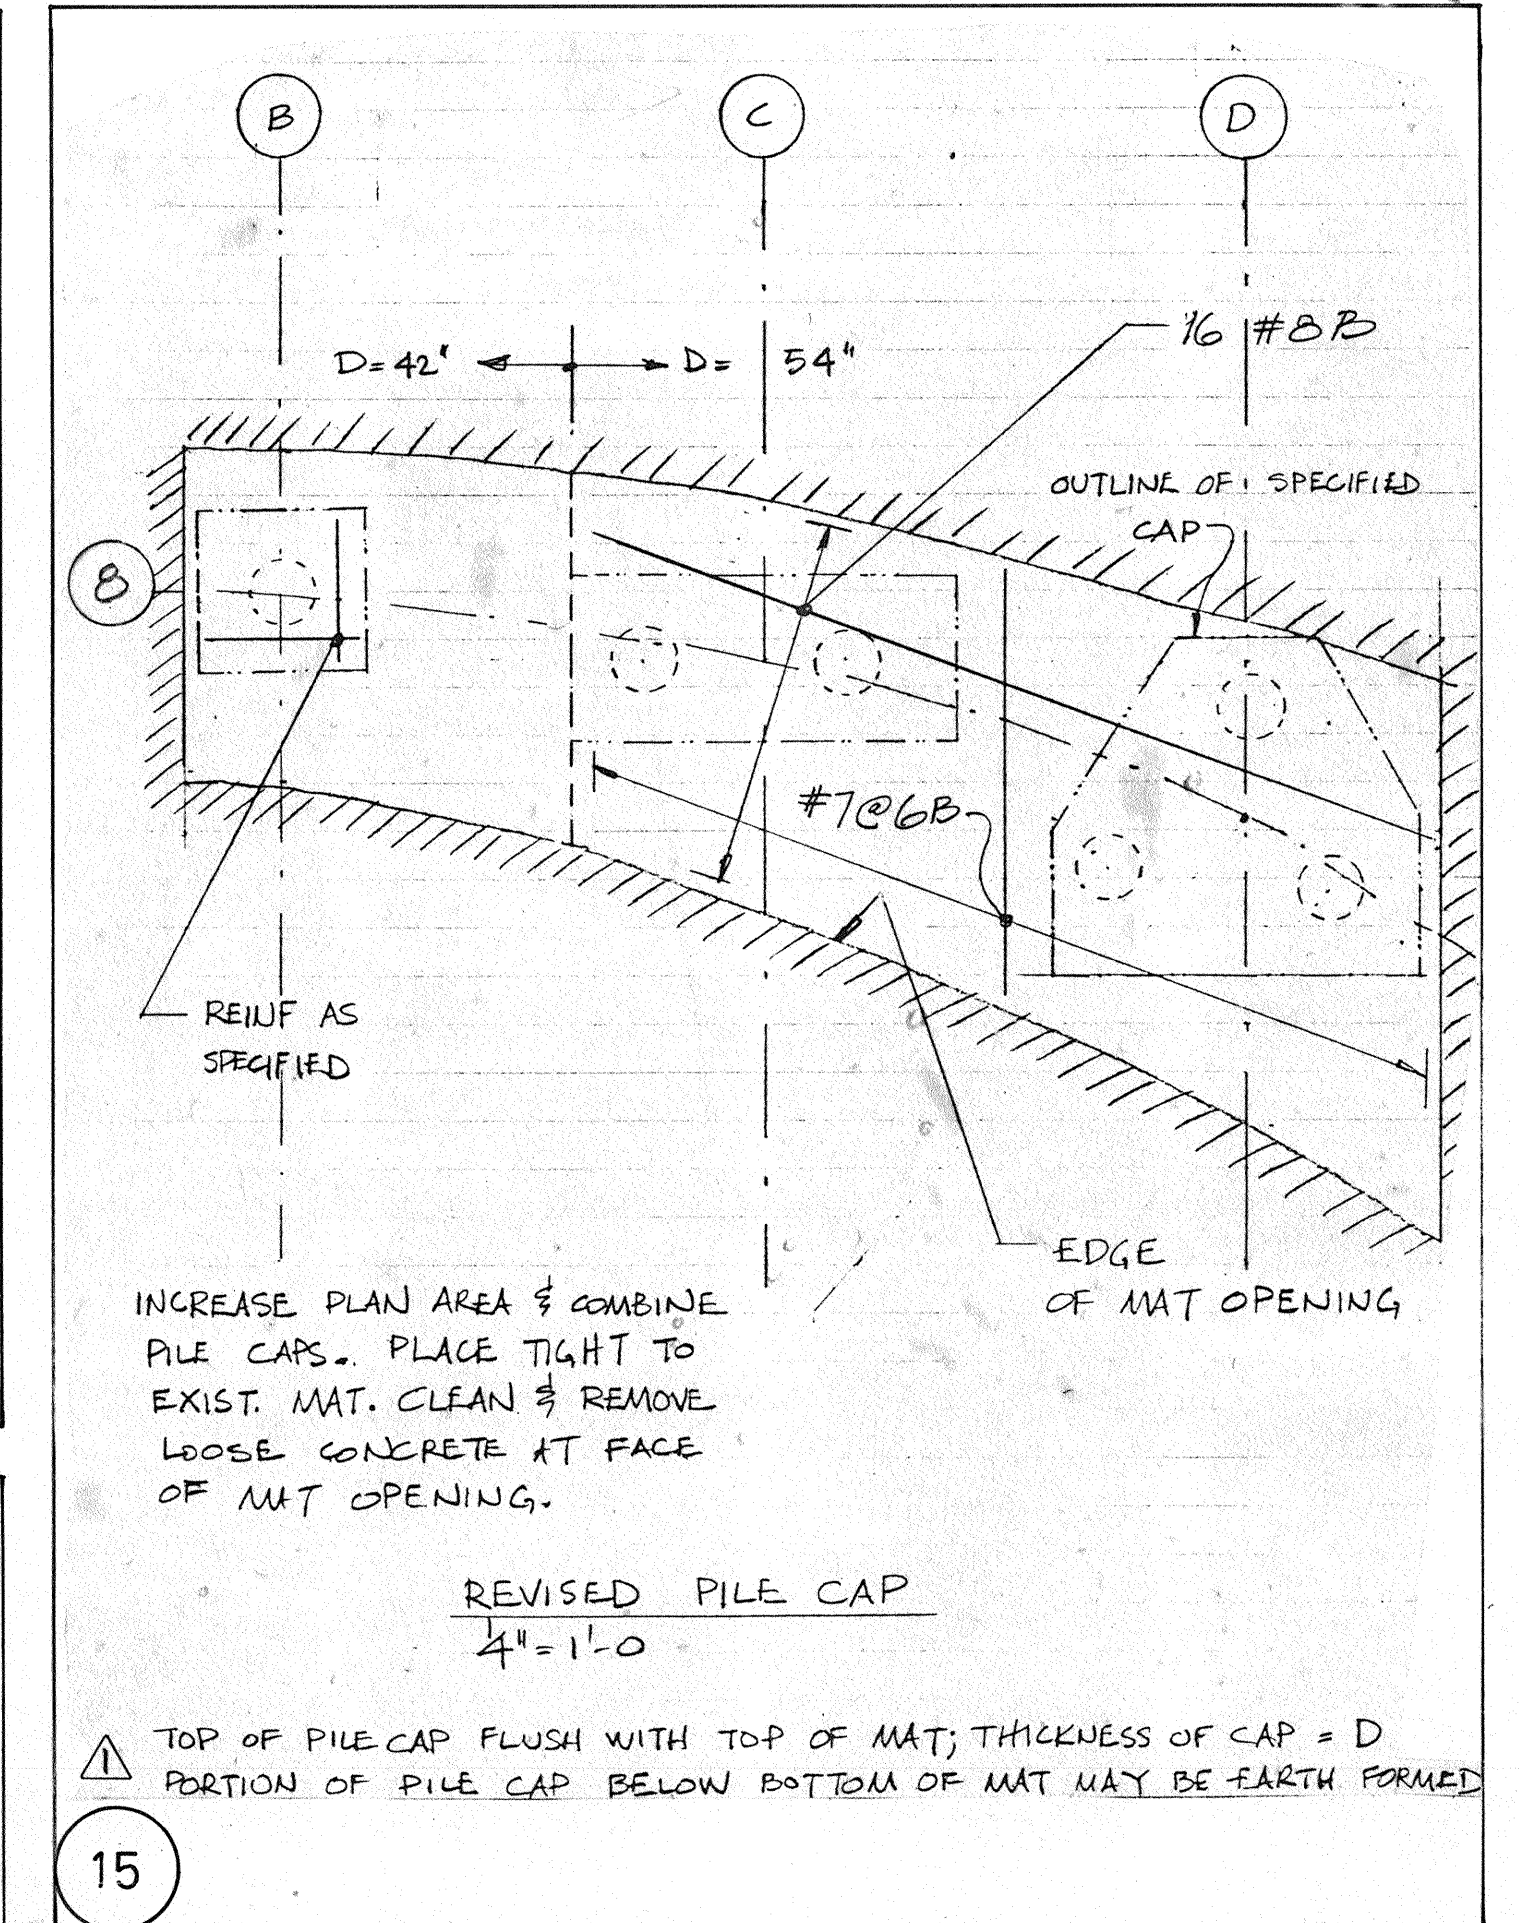 B
C
D
16 #8B
D=42" D= 54"
OUTLINE OF SPECIFIED
CAP
8
#7@6B
REINF AS
SPECIFIED
EDGE
OF MAT OPENING
INCREASE PLAN AREA & COMBINE
PILE CAPS. PLACE TIGHT TO
EXIST. MAT. CLEAN & REMOVE
LOOSE CONCRETE AT FACE
OF MAT OPENING.
REVISED PILE CAP
1/4" = 1'-0
1 TOP OF PILE CAP FLUSH WITH TOP OF MAT; THICKNESS OF CAP = D
PORTION OF PILE CAP BELOW BOTTOM OF MAT MAY BE EARTH FORMED
15